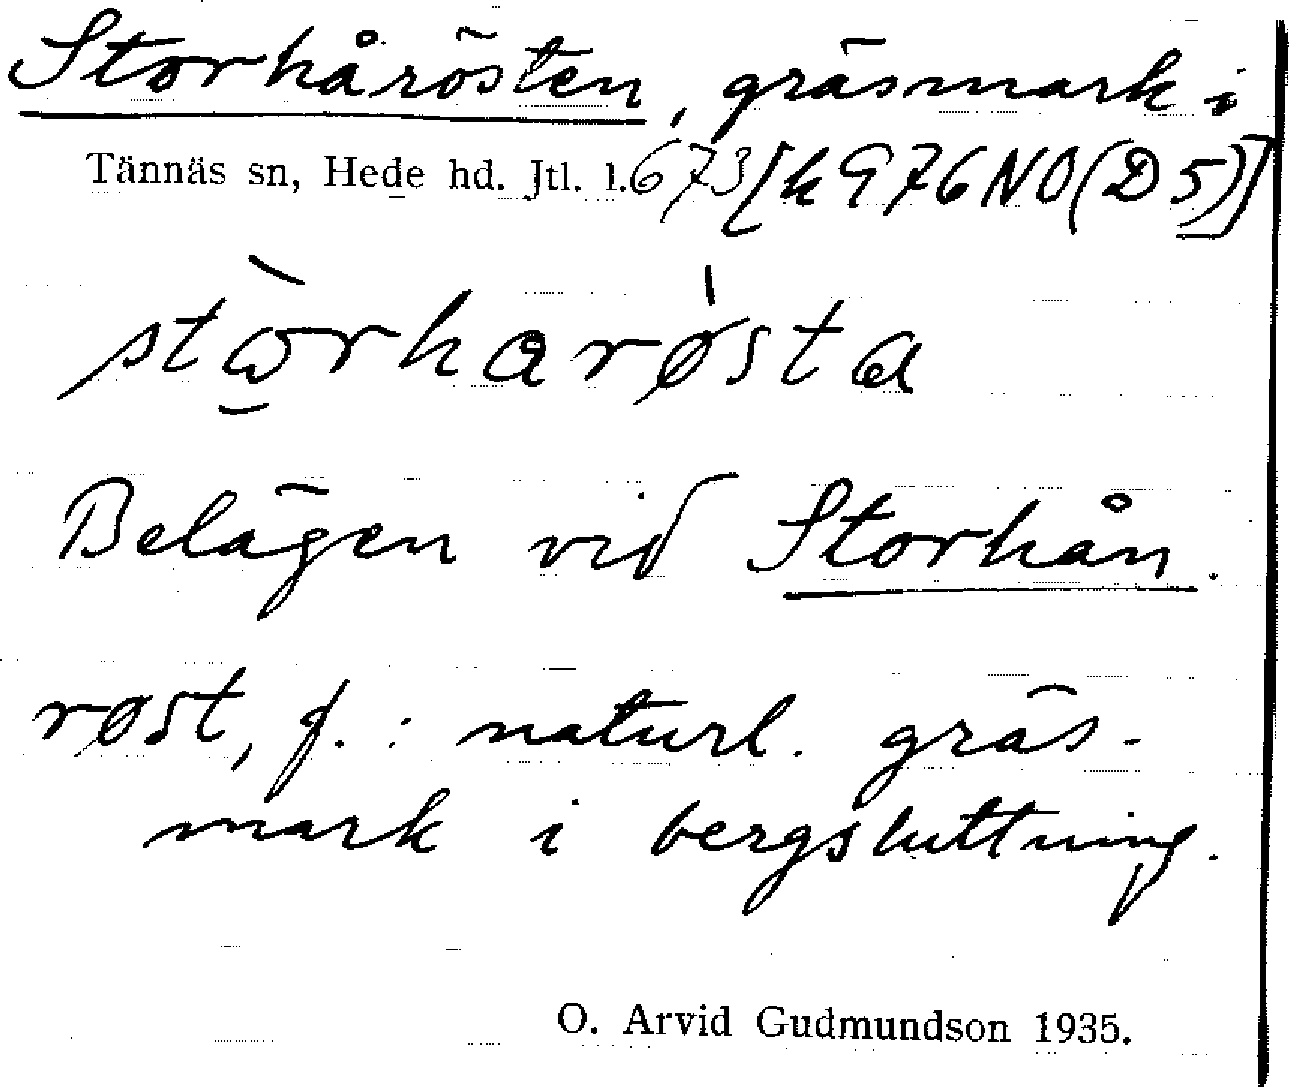 Storhårösten, gräsmark i
Tännäs sn, Hede hd. Jtl. l. 673 [k 976 NO (D 5)]
stò̱rharø̍sta
Belägen vid Storhån.
røst, f. : naturl. gräs-
mark i bergsluttning.
O. Arvid Gudmundson 1935.